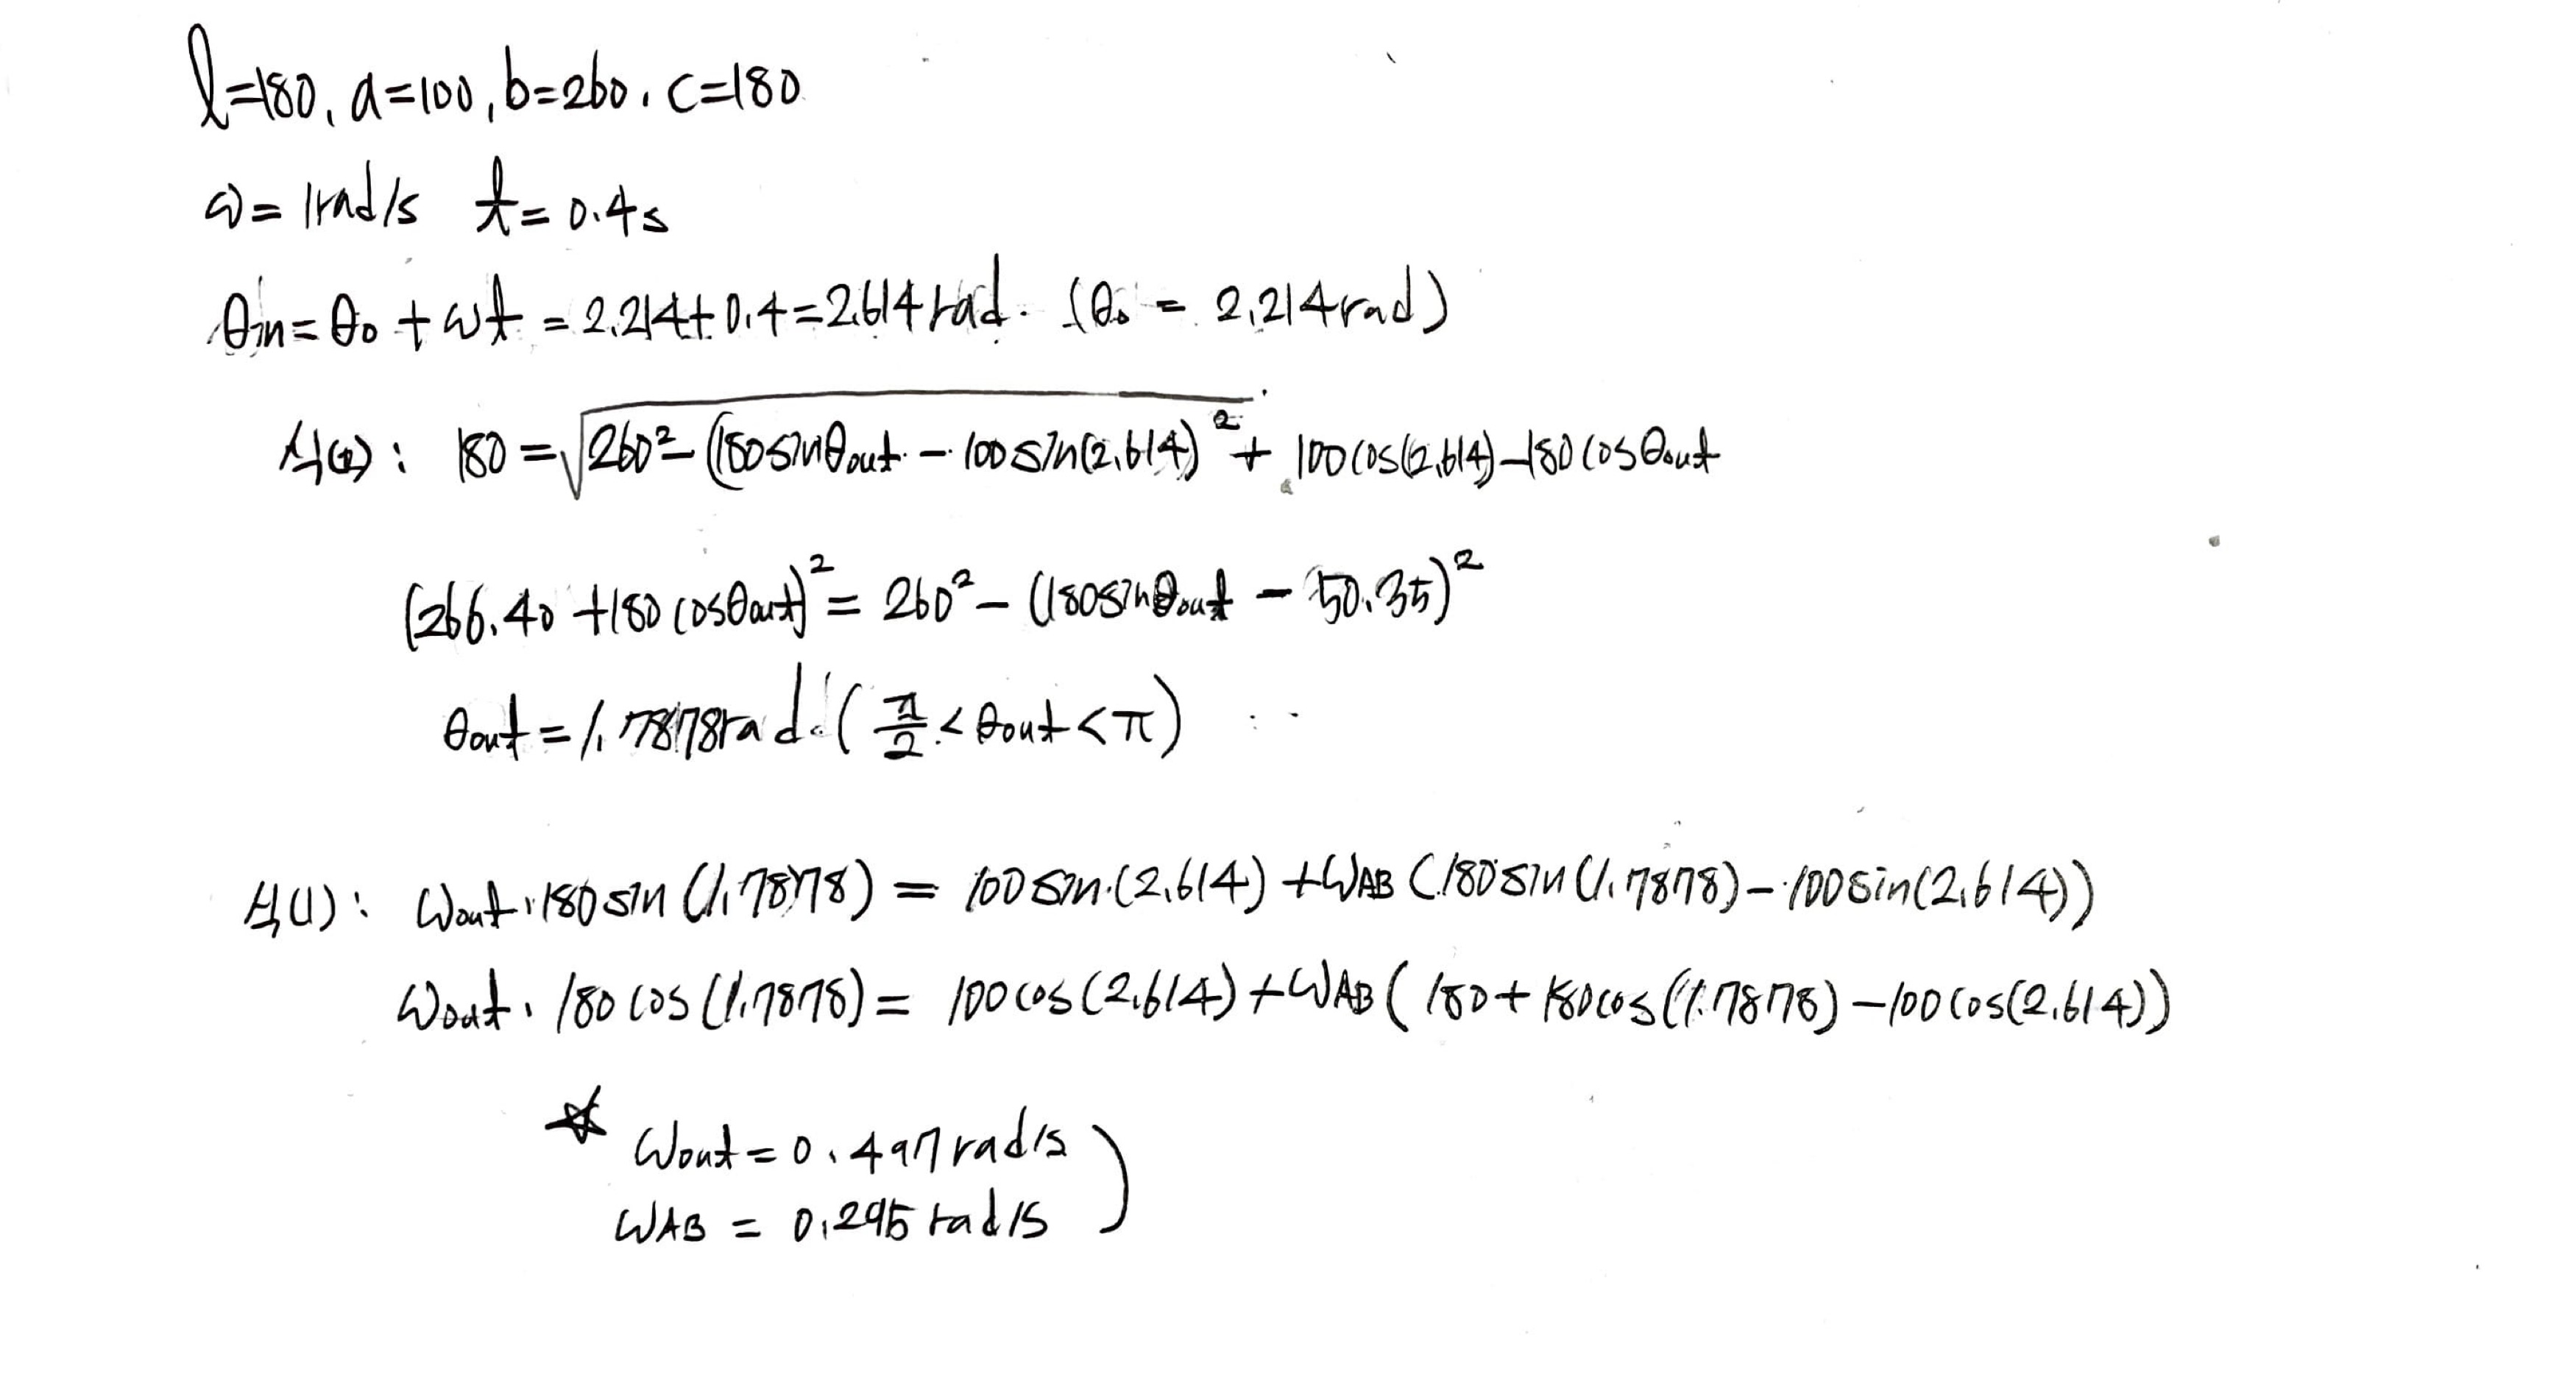 l=180, a=100, b=260, c=180
ω=1rad/s t=0.4s
θin=θ0+ωt=2.214+0.4=2.614rad. (θ0=2.214rad)
식(2): 180=√260²-(180sinθout-100sin(2.614)²+100cos(2.614)-180cosθout
(266.40+180cosθout)²=260²-(180sinθout-50.35)²
θout=1.7878rad.(π/2<θout<π)
식(1): ωout·180sin(1.7878)=100sin(2.614)+ωAB(180sin(1.7878)-100sin(2.614))
ωout·180cos(1.7878)=100cos(2.614)+ωAB(180+180cos(1.7878)-100cos(2.614))
☆ ωout=0.497rad/s
ωAB=0.295rad/s )